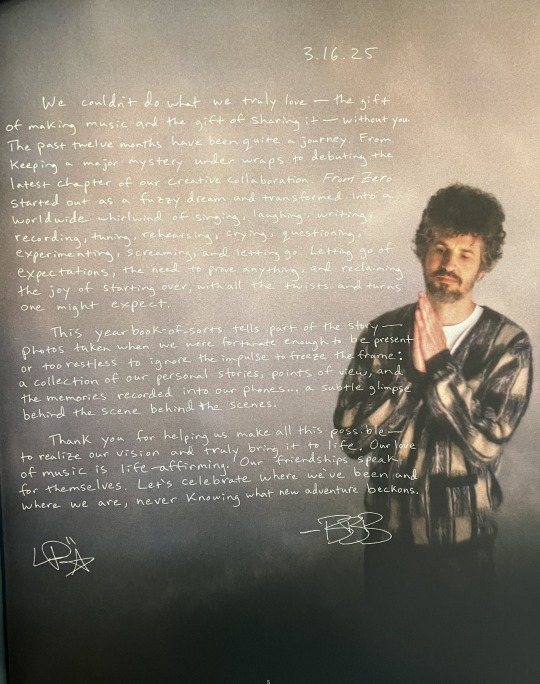 3.16.25
We couldn't do what we truly love — the gift
of making music and the gift of sharing it — without you.
The past twelve months have been quite a journey. From
keeping a major mystery under wraps to debuting the
latest chapter of our creative collaboration. From Zero
started out as a fuzzy dream and transformed into a
worldwide whirlwind of singing, laughing, writing,
recording, tuning, rehearsing, crying, questioning,
experimenting, screaming, and letting go. Letting go of
expectations, the need to prove anything, and reclaiming
the joy of starting over, with all the twists and turns
one might expect.
This yearbook-of-sorts tells part of the story —
photos taken when we were fortunate enough to be present
or too restless to ignore the impulse to freeze the frame:
a collection of our personal stories, points of view, and
the memories recorded into our phones... a subtle glimpse
behind the scene behind the scenes.
Thank you for helping us make all this possible —
to realize our vision and truly bring it to life. Our love
of music is life-affirming. Our friendships speak
for themselves. Let's celebrate where we've been and
where we are, never knowing what new adventure beckons.
—BBB